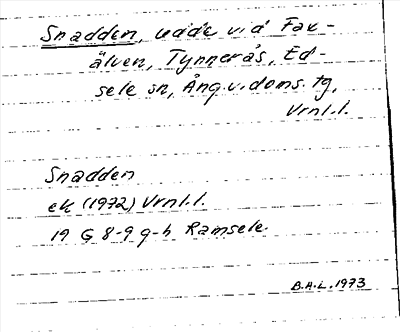 Snadden, udde vid Fax-
älven, Tynnerås, Ed-
sele sn, Ång.v.doms.tg,
Vrnl.l.
Snadden
ek (1972) Vrnl.l.
19 G 8-9 g-h Ramsele.
B.A.L. 1973